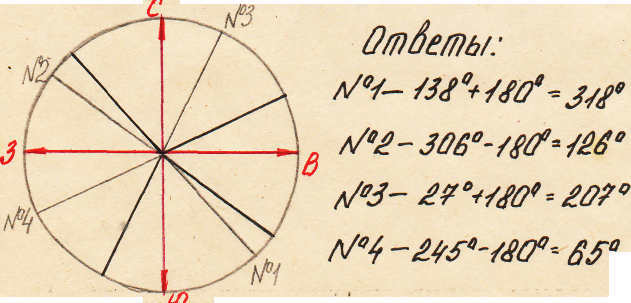 С
№3
№2
З
В
№4
№1
Ю
Ответы:
№1 – 138° + 180° = 318°
№2 – 306° - 180° = 126°
№3 – 27° + 180° = 207°
№4 – 245° - 180° = 65°